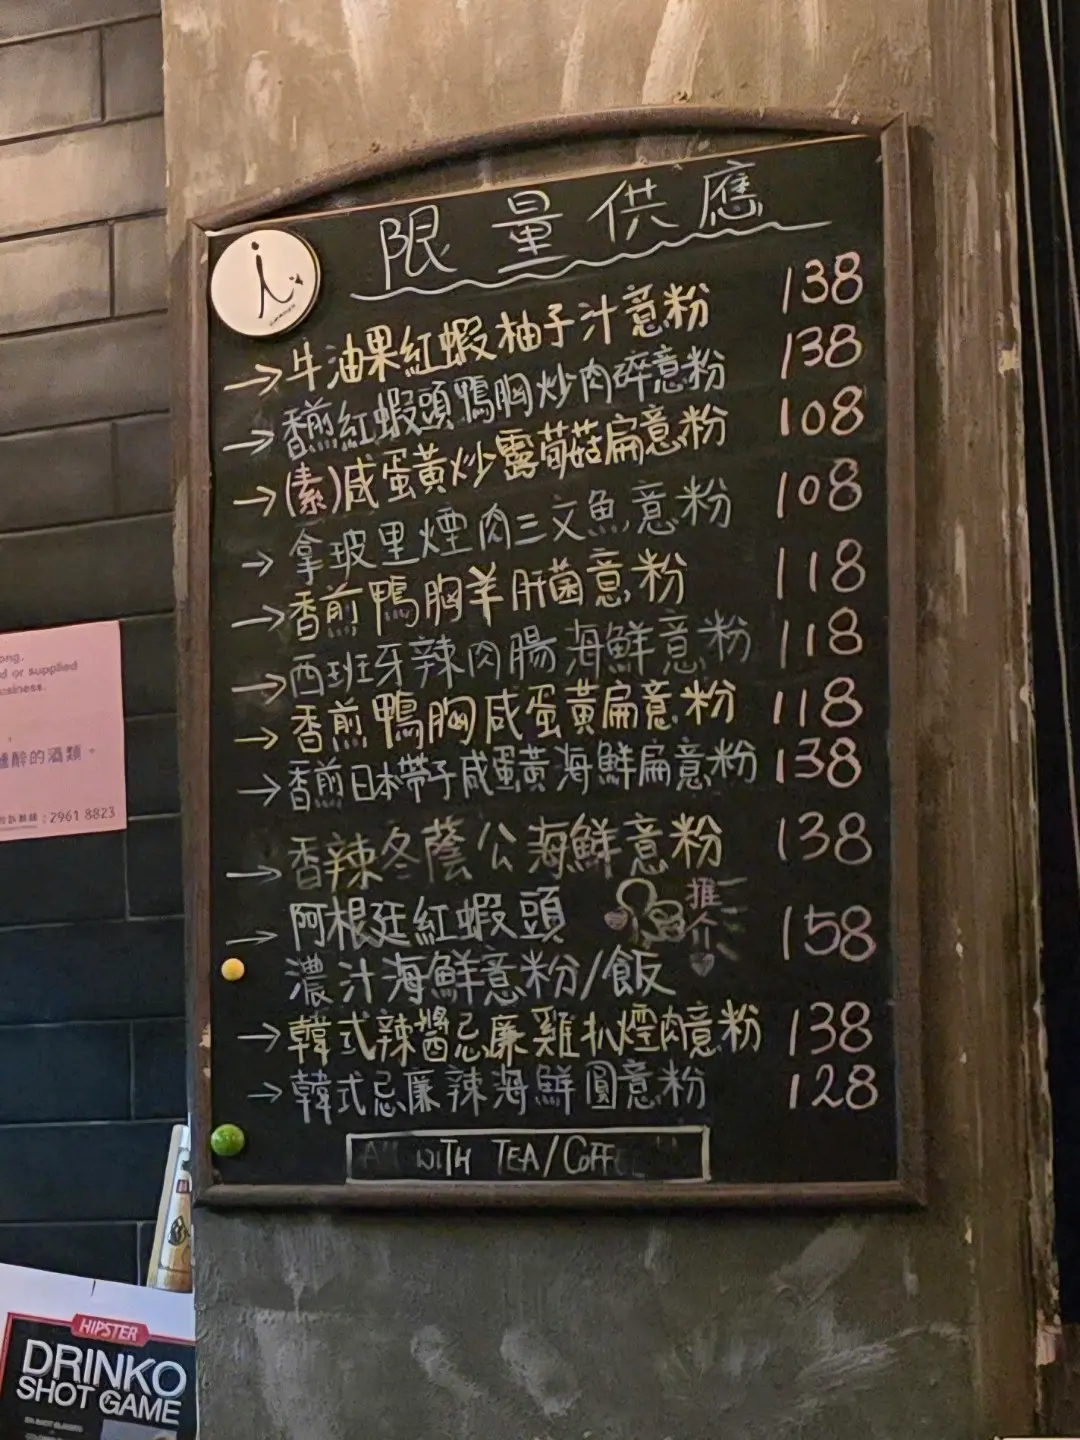 限量供應
→牛油果紅蝦柚子汁意粉 138
→香煎紅蝦頭鴨胸炒肉碎意粉 138
→(素)咸蛋黃炒露荀菇扁意粉 108
→拿玻里煙肉三文魚意粉 108
→香煎鴨胸羊肝菌意粉 118
→西班牙辣肉腸海鮮意粉 118
→香煎鴨胸咸蛋黃扁意粉 118
→香煎日本帶子咸蛋黃海鮮扁意粉 138
→香辣冬蔭公海鮮意粉 138
→阿根廷紅蝦頭 推介 158
濃汁海鮮意粉/飯
→韓式辣醬忌廉雞扒煙肉意粉 138
→韓式忌廉辣海鮮圓意粉 128
WITH TEA/COFFE
ong.
d or supplied
usiness.
醉的酒類。
: 2961 8823
HIPSTER
DRINKO
SHOT GAME